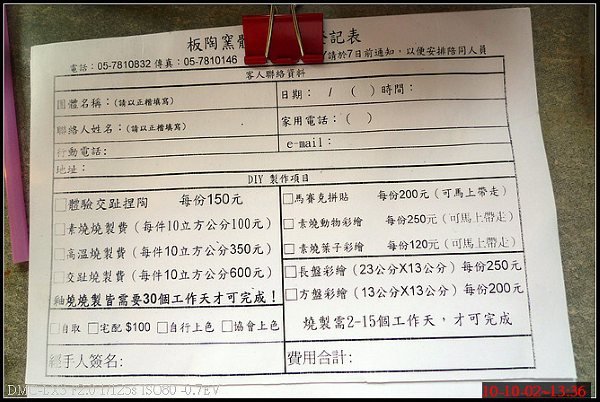 板陶窯體 登記表
電話：05-7810832 傳真：05-7810146 請於7日前通知，以便安排陪同人員
客人聯絡資料
團體名稱：(請以正楷填寫) 日期： / ( ) 時間：
聯絡人姓名：(請以正楷填寫) 家用電話：( )
行動電話： e-mail：
地址：
DIY 製作項目
□體驗交趾捏陶 每份150元 □馬賽克拼貼 每份200元 (可馬上帶走)
□素燒燒製費 (每件10立方公分100元) □素燒動物彩繪 每份250元 (可馬上帶走)
□高溫燒製費 (每件10立方公分350元) □素燒葉子彩繪 每份120元 (可馬上帶走)
□交趾燒製費 (每件10立方公分600元) □長盤彩繪 (23公分X13公分) 每份250元
釉燒燒製皆需要30個工作天才可完成！ □方盤彩繪 (13公分X13公分) 每份200元
□自取 □宅配 $100 □自行上色 □協會上色 燒製需2-15個工作天，才可完成
經手人簽名: 費用合計:
DMC-LX3 F2.0 1/125s ISO80 -0.7EV 10-10-02-13:36